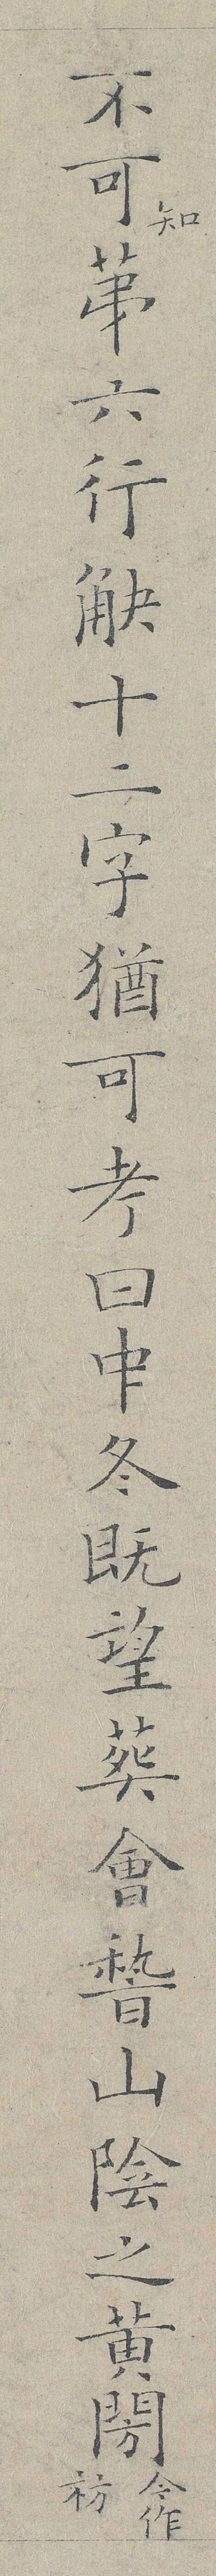 不可知苐六行觖十二字猶可考曰中冬既望葬會稽山陰之黃閍今作祊